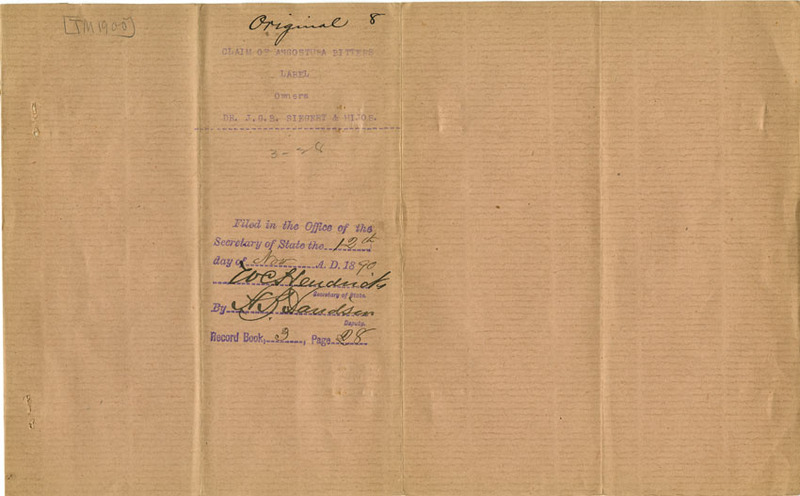 [TM1900]
Original 8
CLAIM OF ANGOSTURA BITTERS
LABEL
Owners
DR. J.G.B. SIEGERT & HIJOS.
3-28
Filed in the Office of the
Secretary of State the 12th
day of Nov A. D. 1890
W C Hendricks
Secretary of State.
By A. S. Davidson
Deputy.
Record Book, 3, Page 28